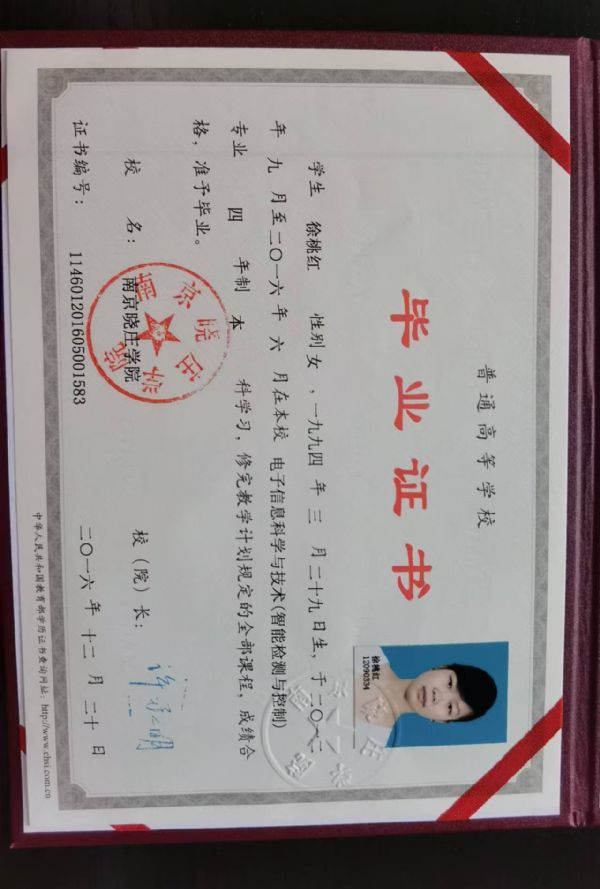 普通高等学校
毕业证书
徐桃红
12090334
学生 徐桃红 性别 女 ，一九九四 年 三 月 二十九日生，于 二〇一二
年 九 月至 二〇一六 年 六 月在本校 电子信息科学与技术(智能检测与控制)
专业 四 年制 本 科学习，修完教学计划规定的全部课程，成绩合
格，准予毕业。
校 名： 南京晓庄学院 校（院）长：
南京晓庄学院
证书编号： 114601201605001583 二〇一六 年 十二 月 二十 日
中华人民共和国教育部学历证书查询网址：http://www.chsi.com.cn